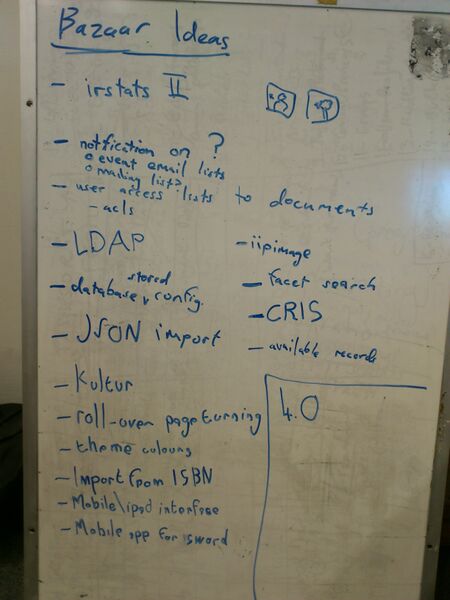 Bazaar Ideas
- irstats II
- notfication on ?
o event email lists
o mailing list?
- user access lists to documents
- acls
- LDAP
- database stored config.
- JSON import
- Kultur
- roll-over page turning
- theme colours
- Import from ISBN
- Mobile\ipad interface
- Mobile app for sword
- iipimage
- facet search
- CRIS
- available records
4.0